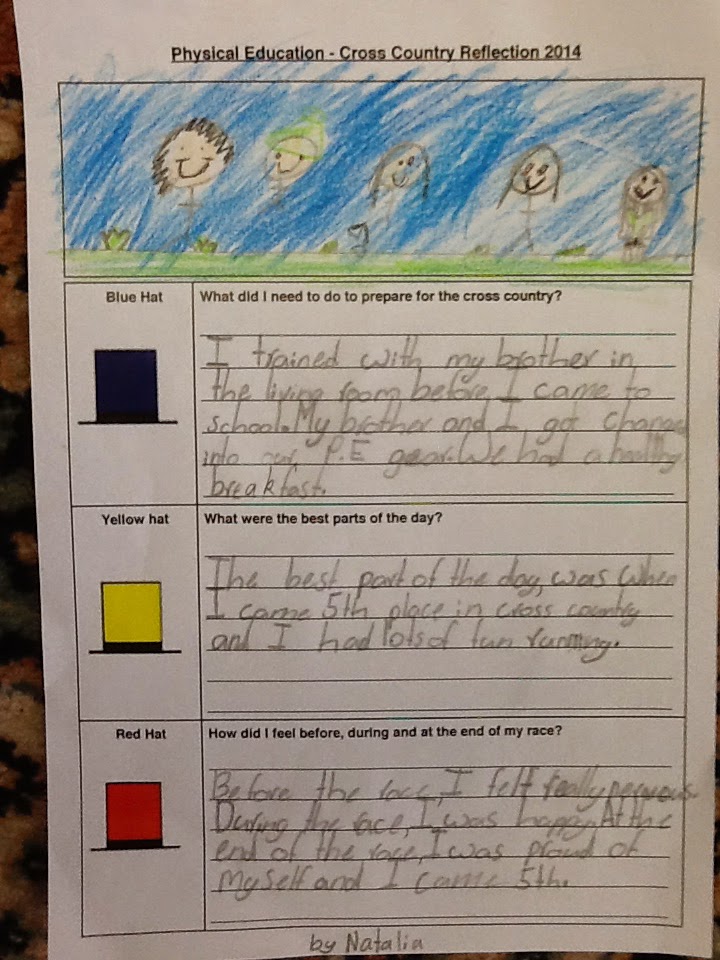 Physical Education - Cross Country Reflection 2014
Blue Hat
What did I need to do to prepare for the cross country?
I trained with my brother in
the living room before I came to
school. My brother and I got changed
into our P.E gear. We had a healthy
breakfast.
Yellow hat
What were the best parts of the day?
The best part of the day, was when
I came 5th place in cross country
and I had lots of fun running.
Red Hat
How did I feel before, during and at the end of my race?
Before the race, I felt really nervous.
During the race, I was happy. At the
end of the race, I was proud of
myself and I came 5th.
by Natalia